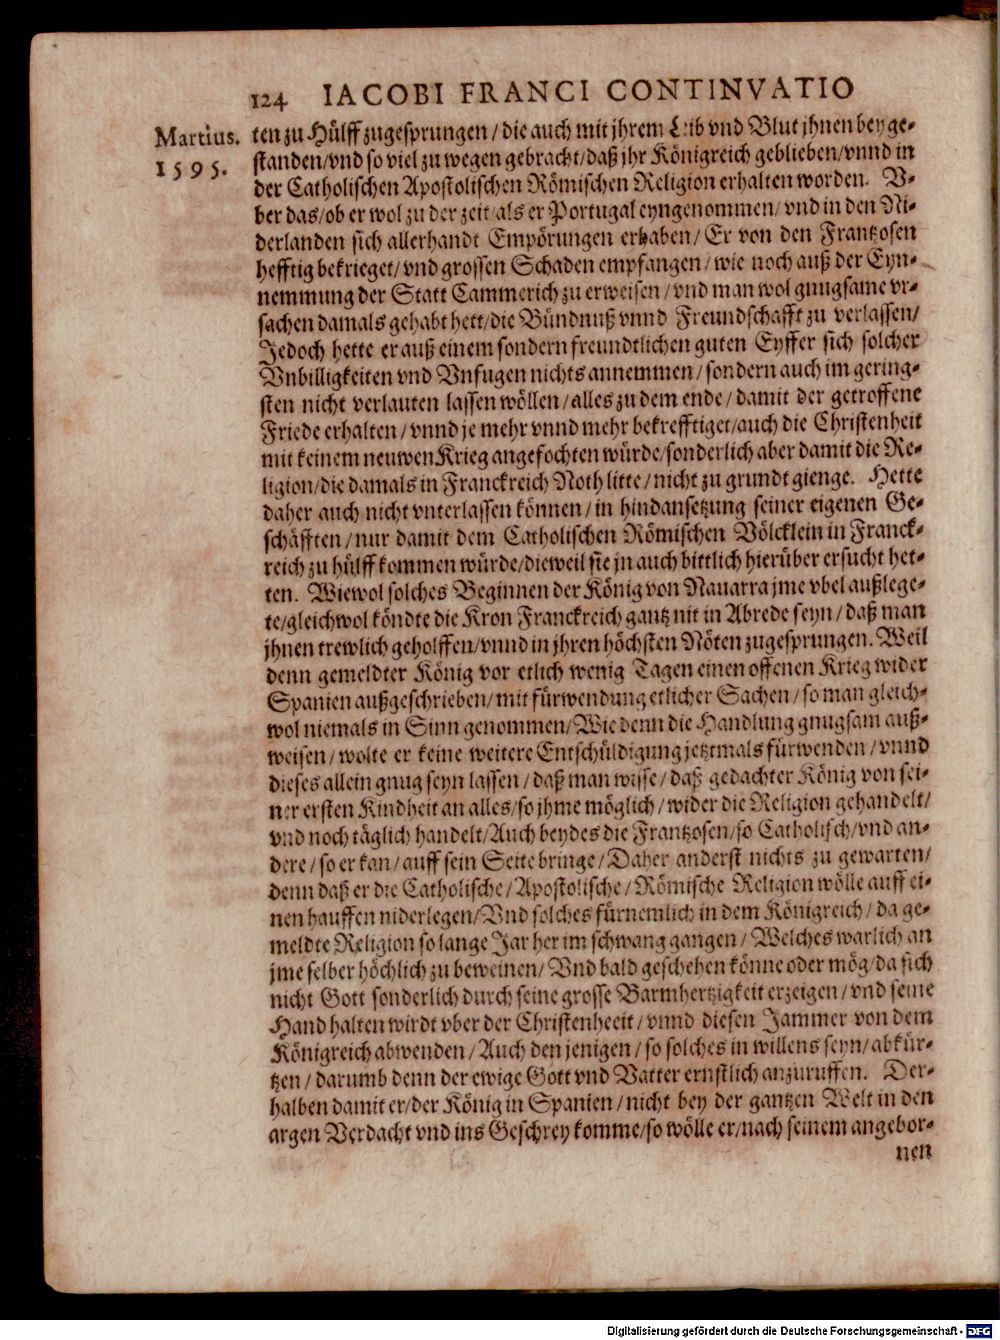 124 IACOBI FRANCI CONTINVATIO
Martius.
1595.
ten zu Hülff zugesprungen / die auch mit jhrem Leib vnd Blut jhnen beyge-
standen/vnd so viel zu wegen gebracht/daß jhr Königreich geblieben/vnnd in
der Catholischen Apostolischen Römischen Religion erhalten worden. V-
ber das/ob er wol zu der zeit/als er Portugal eyngenommen/vnd in den Ni-
derlanden sich allerhandt Empörungen erhaben/Er von den Frantzosen
hefftig bekrieget/vnd grossen Schaden empfangen/wie noch auß der Eyn-
nemmung der Statt Cammerich zu erweisen/vnd man wol gnugsame vr-
sachen damals gehabt hett/die Bündnuß vnnd Freundschafft zu verlassen/
Jedoch hette er auß einem sondern freundtlichen guten Eyffer sich solcher
Vnbilligkeiten vnd Vnfugen nichts annemmen/sondern auch im gering-
sten nicht verlauten lassen wöllen/alles zu dem ende/damit der getroffene
Friede erhalten/vnnd je mehr vnnd mehr bekrefftiget/auch die Christenheit
mit keinem neuwen Krieg angefochten würde/sonderlich aber damit die Re-
ligion/die damals in Franckreich Noth litte/nicht zu grundt gienge. Hette
daher auch nicht vnterlassen können/in hindansetzung seiner eigenen Ge-
schäfften/nur damit dem Catholischen Römischen Völcklein in Franck-
reich zu hülff kommen würde/dieweil sie jn auch bittlich hierüber ersucht het-
ten. Wiewol solches Beginnen der König von Nauarra jme vbel außlege-
te/gleichwol köndte die Kron Franckreich gantz nit in Abrede seyn/daß man
jhnen trewlich geholffen/vnnd in jhren höchsten Nöten zugesprungen. Weil
denn gemeldter König vor etlich wenig Tagen einen offenen Krieg wider
Spanien außgeschrieben/mit fürwendung etlicher Sachen/so man gleich-
wol niemals in Sinn genommen/Wie denn die Handlung gnugsam auß-
weisen/wolte er keine weitere Entschüldigung jetztmals fürwenden/vnnd
dieses allein gnug seyn lassen/daß man wisse/daß gedachter König von sei-
ner ersten Kindheit an alles/so jhme möglich/wider die Religion gehandelt/
vnd noch täglich handelt/Auch beydes die Frantzosen/so Catholisch/vnd an-
dere/so er kan/auff sein Seite bringe/Daher anderst nichts zu gewarten/
denn daß er die Catholische/Apostolische/Römische Religion wölle auff ei-
nen hauffen niderlegen/Vnd solches fürnemlich in dem Königreich/da ge-
meldte Religion so lange Jar her im schwang gangen/Welches warlich an
jme selber höchlich zu beweinen/Vnd bald geschehen könne oder mög/da sich
nicht Gott sonderlich durch seine grosse Barmhertzigkeit erzeigen/vnd seine
Hand halten wirdt vber der Christenheeit/vnnd diesen Jammer von dem
Königreich abwenden/Auch den jenigen/so solches in willens seyn/abkür-
tzen/darumb denn der ewige Gott vnd Vatter ernstlich anzuruffen. Der-
halben damit er/der König in Spanien/nicht bey der gantzen Welt in den
argen Verdacht vnd ins Geschrey komme/so wölle er/nach seinem angebor-
nen
Digitalisierung gefördert durch die Deutsche Forschungsgemeinschaft - DFG